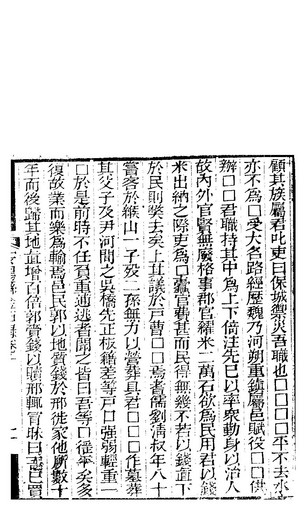 顧其族屬君叱吏曰保城禦災吾職也□□□□平不去水
亦不為□受大名路經歷魏乃河朔重鎮屬邑賦役□□□供
辦□□君職持其中為上下倚注先己以率眾動身以治人
故內外官賢無廢格事郡官糴米二萬石欲為民用君以錢
米出納之際吏為□□蠹官費甚而民得無幾不若以錢直下
於民則癸去矣上其議於戶曹□□焉耆儒劉淸叔年八十
嘗客於緱山一子歿二孫無力以營葬具君□□□作墓葬
其父子及尹河間之吳橋先正板籍差等戶□強弱輕重一
□於是前時不任負重逋逃者聞之皆曰吾等□徭平矣亥
復故業而樂為輸焉邑民郭以地質錢於邢徙家他所數十
年而後歸其地直增百倍郭賫錢以贖邢輒